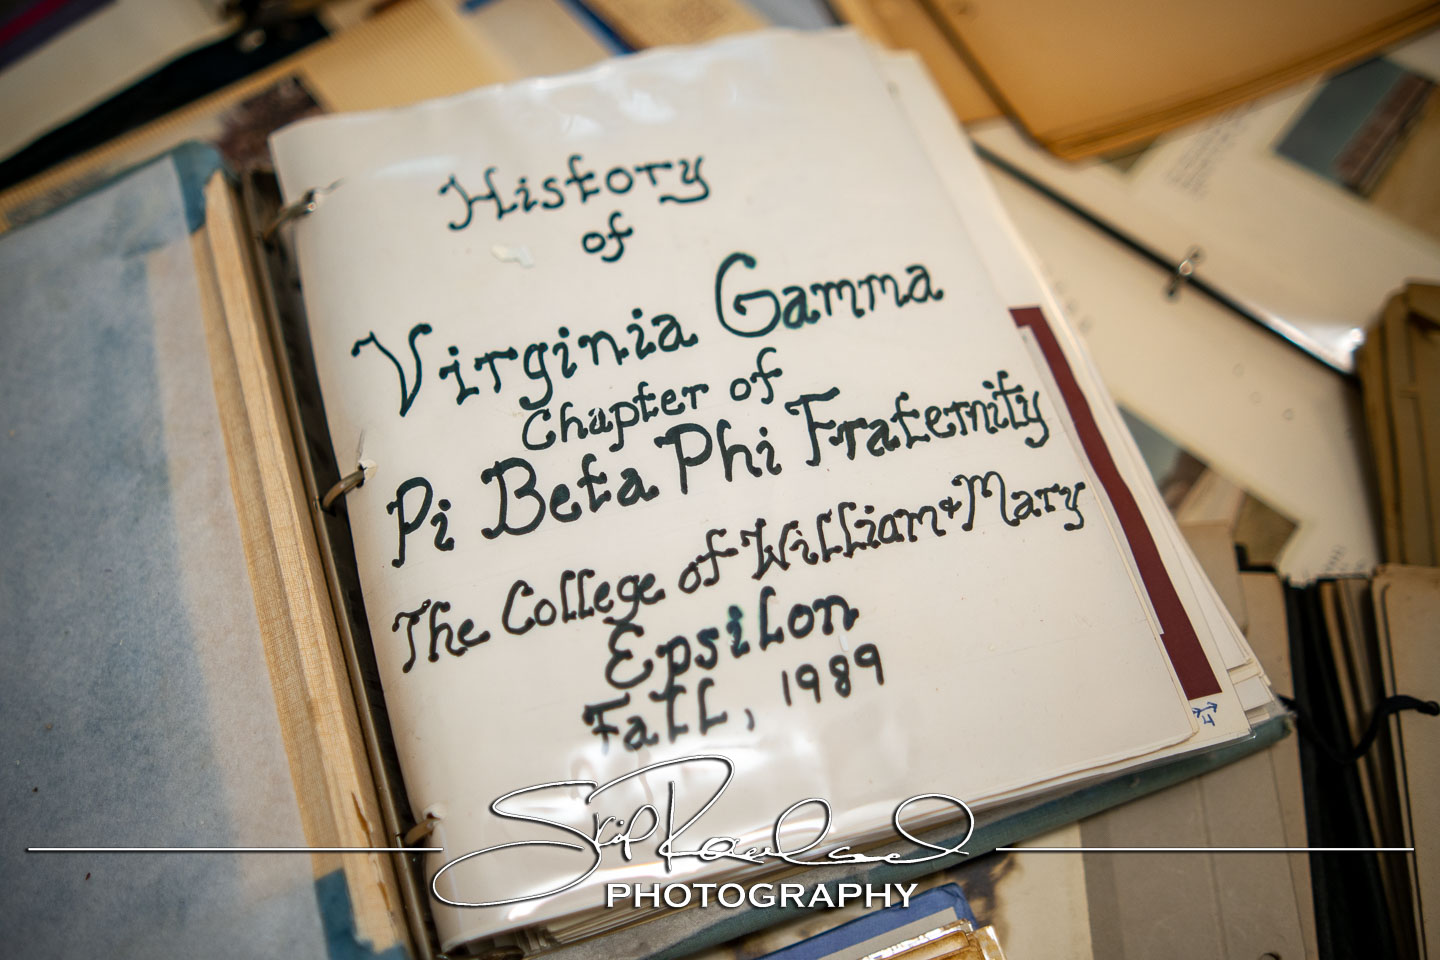 History
of
Virginia Gamma
Chapter of
Pi Beta Phi Fraternity
The College of William & Mary
Epsilon
Fall, 1989
Skip Rowland
PHOTOGRAPHY